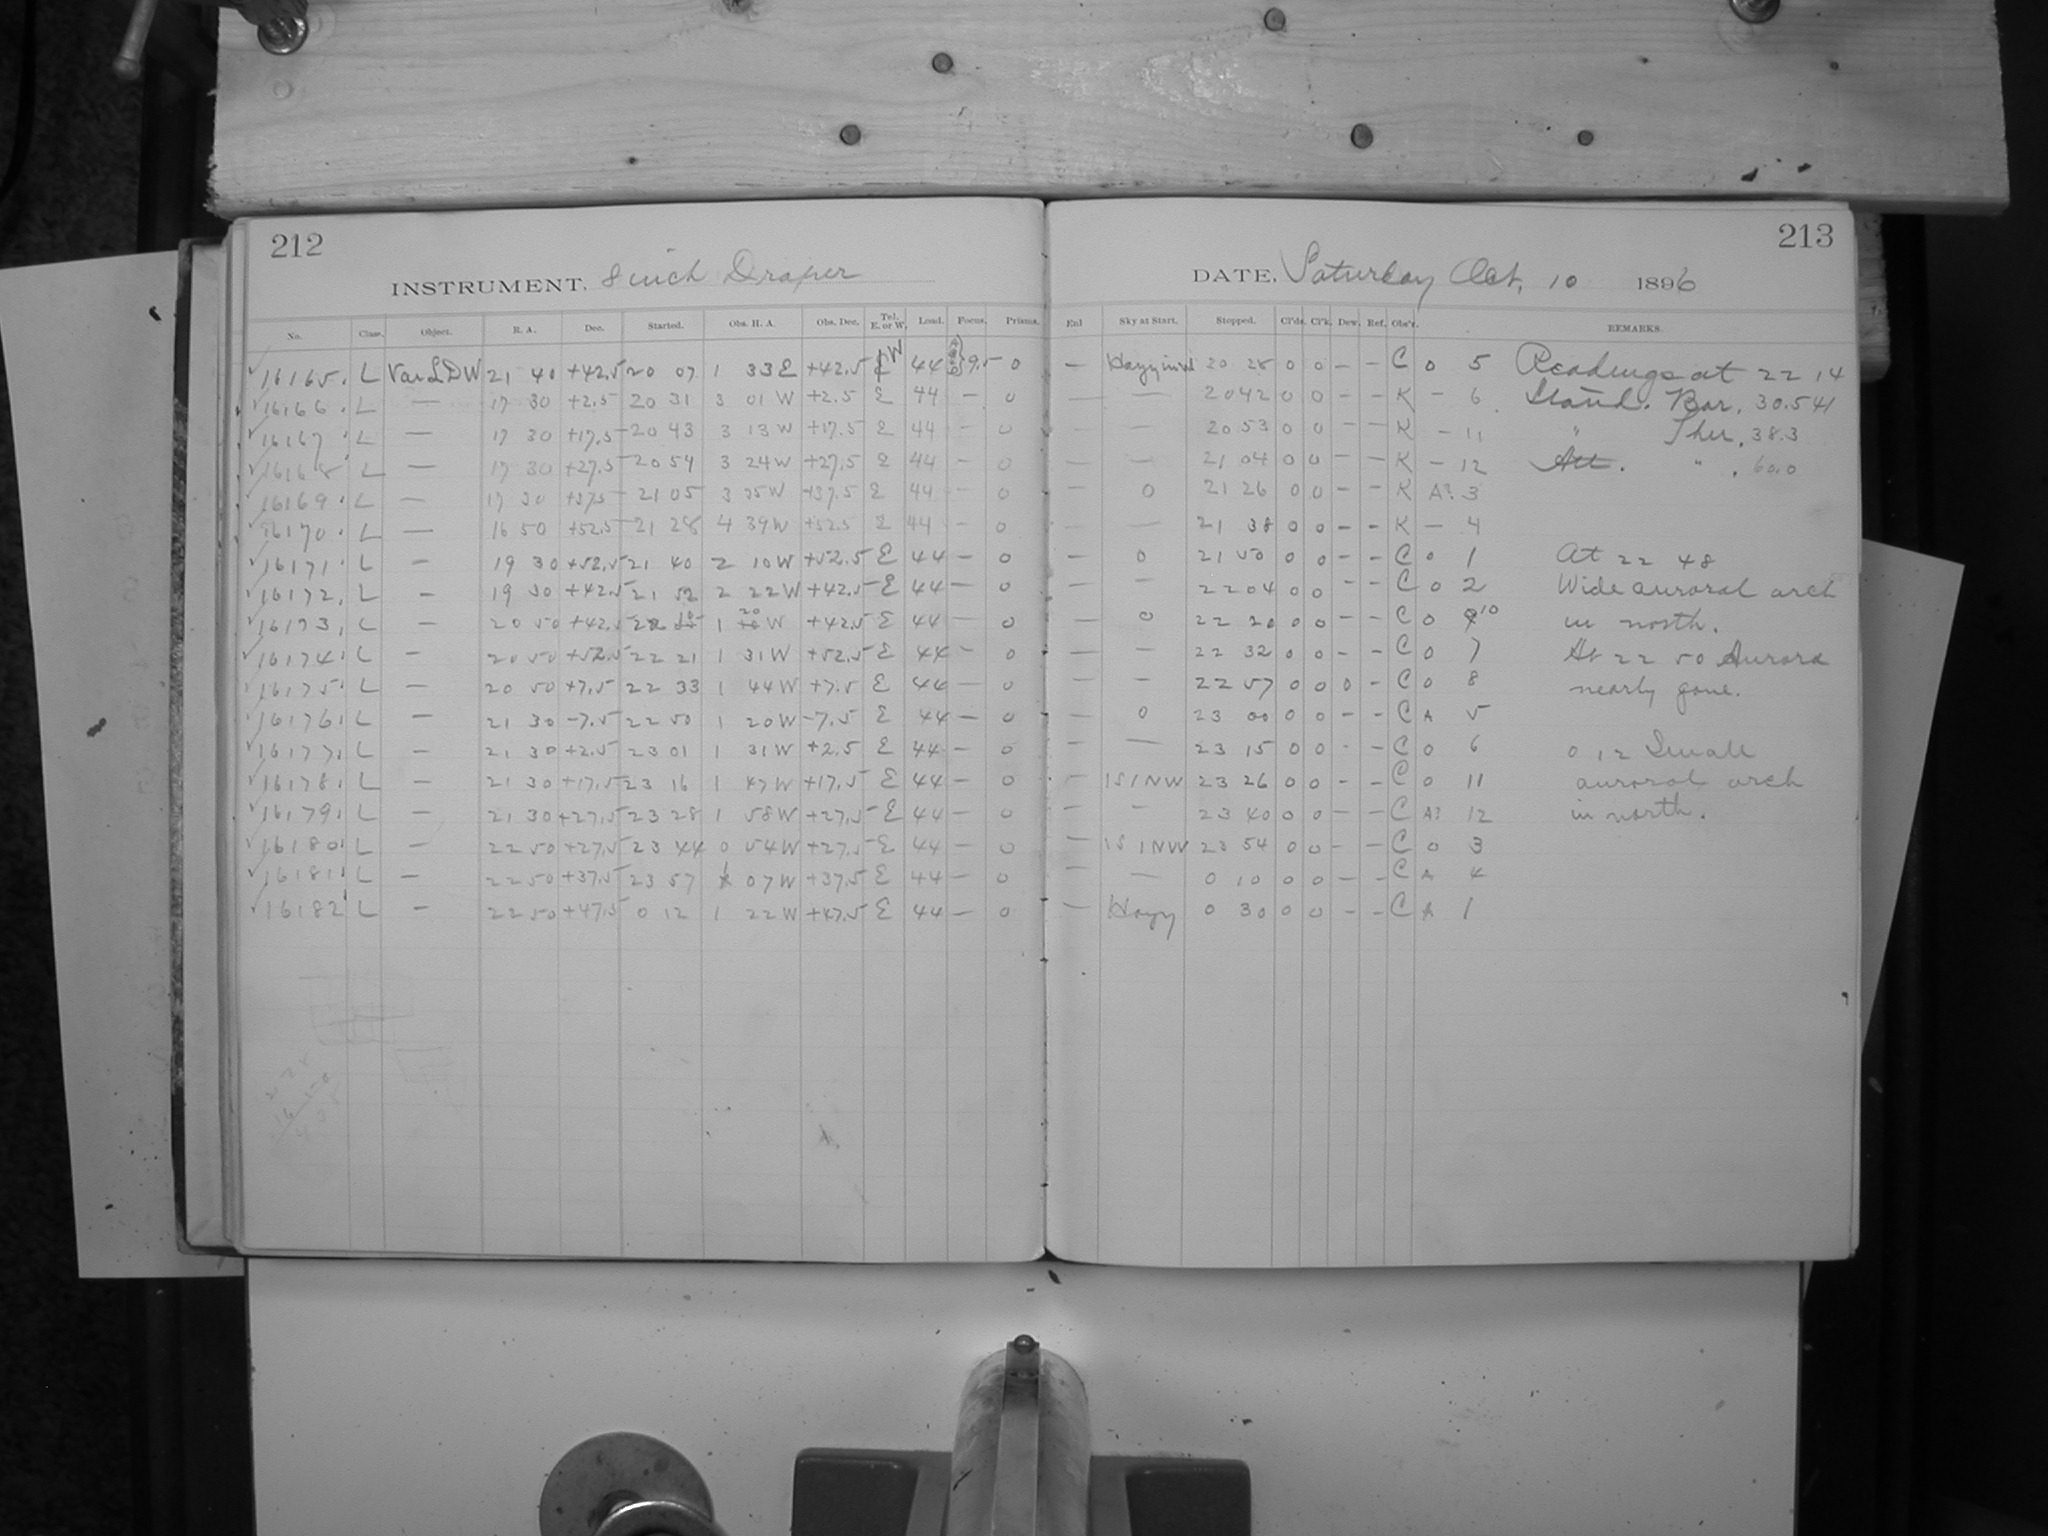 212
INSTRUMENT. 8 inch Draper
No. Class. Object. R. A. Dec. Started. Obs. H. A. Obs. Dec. Tel. E. or W. Load. Focus. Prisms.
16165. L 21 40 +42.5 20 07 1 33 E +42.5 W 44 9.5 0
16166. L — 17 30 +2.5 20 31 3 01 W +2.5 E 44 — 0
16167. L — 17 30 +17.5 20 43 3 13 W +17.5 E 44 — 0
16168. L — 17 30 +27.5 20 54 3 24 W +27.5 E 44 — 0
16169. L — 17 30 +37.5 21 05 3 35 W +37.5 E 44 — 0
16170. L — 16 50 +52.5 21 28 4 39 W +52.5 E 44 — 0
16171. L — 19 30 +52.5 21 40 2 10 W +52.5 E 44 — 0
16172. L — 19 30 +42.5 21 52 2 22 W +42.5 E 44 — 0
16173. L — 20 50 +42.5 22 1 20 W +42.5 E 44 — 0
16174. L — 20 50 +52.5 22 21 1 31 W +52.5 E 44 — 0
16175. L — 20 50 +7.5 22 33 1 44 W +7.5 E 44 — 0
16176. L — 21 30 -7.5 22 50 1 20 W -7.5 E 44 — 0
16177. L — 21 30 +2.5 23 01 1 31 W +2.5 E 44 — 0
16178. L — 21 30 +17.5 23 16 1 47 W +17.5 E 44 — 0
16179. L — 21 30 +27.5 23 28 1 58 W +27.5 E 44 — 0
16180. L — 22 50 +27.5 23 44 0 54 W +27.5 E 44 — 0
16181. L — 22 50 +37.5 23 57 1 07 W +37.5 E 44 — 0
16182 L — 22 50 +47.5 0 12 1 22 W +47.5 E 44 — 0
213
DATE, Saturday Oct. 10 1896
Enl Sky at Start. Stopped. Cl'ds. Cl'k. Dew. Ref. Obs'r. REMARKS.
— Hazy in W 20 28 0 0 — — C 0 5 Readings at 22 14
— — 20 42 0 0 — — K — 6 Stand. Bar. 30.541
— — 20 53 0 0 — — K — 11 " Ther. 38.3
— — 21 04 0 0 — — K — 12 Att. " . 60.0
— 0 21 26 0 0 — — K A? 3
— — 21 38 0 0 — — K — 4
— 0 21 50 0 0 — — C 0 1 At 22 48
— — 22 04 0 0 — — C 0 2 Wide auroral arch
— 0 22 20 0 0 — — C 0 10 in north.
— — 22 32 0 0 — — C 0 7 At 22 50 Aurora
— — 22 57 0 0 0 — C 0 8 nearly gone.
— 0 23 00 0 0 — — C A 5
— — 23 15 0 0 — — C 0 6 0 12 Small
— 1S 1NW 23 26 0 0 — — C 0 11 auroral arch
— — 23 40 0 0 — — C A? 12 in north.
— 1S 1NW 23 54 0 0 — — C 0 3
— — 0 10 0 0 — — C A 4
— Hazy 0 30 0 0 — — C A 1